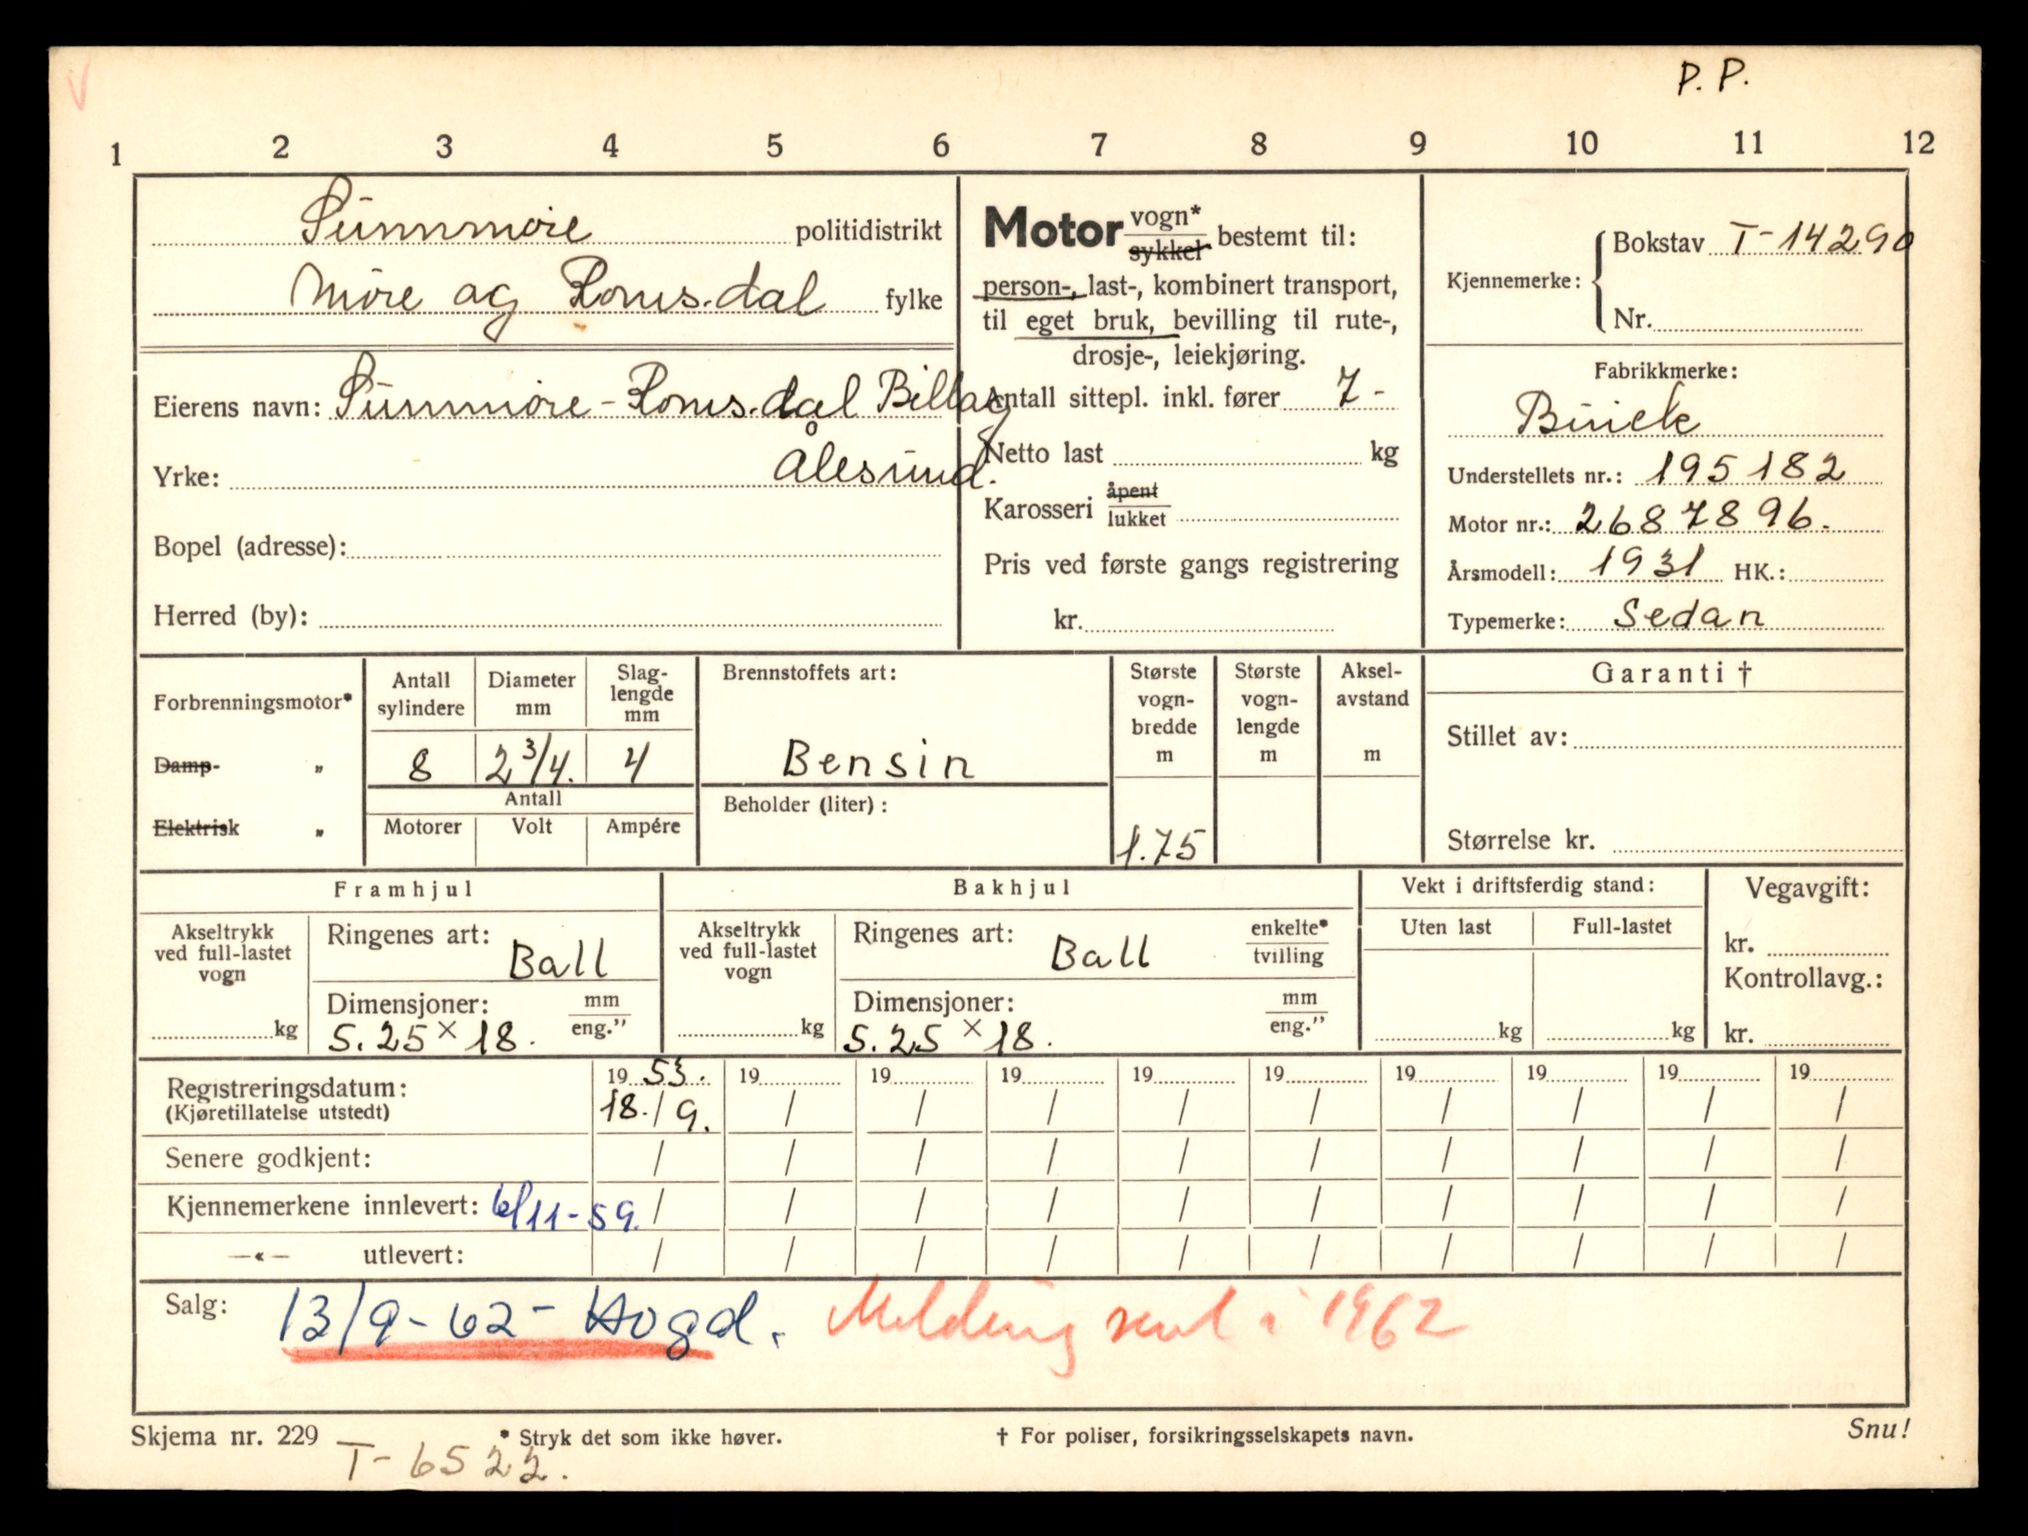 V
P. P.
1 2 3 4 5 6 7 8 9 10 11 12
Sunnmøre politidistrikt
Møre og Romsdal fylke
Eierens navn: Sunnmøre-Romsdal Billag
Yrke: Ålesund.
Bopel (adresse):
Herred (by):
Motor vogn* sykkel bestemt til:
person-, last-, kombinert transport,
til eget bruk, bevilling til rute-,
drosje-, leiekjøring.
Antall sittepl. inkl. fører 7-
Netto last kg
Karosseri åpent lukket
Pris ved første gangs registrering
kr.
Kjennemerke: Bokstav T-14290
Nr.
Fabrikkmerke:
Buick
Understellets nr.: 195182
Motor nr.: 2687896.
Årsmodell: 1931 HK.:
Typemerke: Sedan
Forbrenningsmotor*
Damp- „
Elektrisk „
Antall sylindere
Diameter mm
Slag-
lengde
mm
8 2 3/4. 4
Antall
Motorer Volt Ampére
Brennstoffets art:
Bensin
Beholder (liter):
Største
vogn-
bredde
m
1.75
Største
vogn-
lengde
m
Aksel-
avstand
m
Garanti †
Stillet av:
Størrelse kr.
Framhjul
Akseltrykk
ved full-lastet
vogn
kg
Ringenes art: Ball
Dimensjoner: mm eng."
5.25 × 18.
Bakhjul
Akseltrykk
ved full-lastet
vogn
kg
Ringenes art: Ball enkelte* tvilling
Dimensjoner: mm eng."
5.25 × 18.
Vekt i driftsferdig stand:
Uten last Full-lastet
kg kg
Vegavgift:
kr.
Kontrollavg.:
kr.
Registreringsdatum: 19 53. 19 19 19 19 19 19 19 19 19
(Kjøretillatelse utstedt) 18./9. / / / / / / / / /
Senere godkjent: / / / / / / / / / /
Kjennemerkene innlevert: 6/11-59. / / / / / / / / / /
—«— utlevert: / / / / / / / / / /
Salg: 13/9-62- Hogd. Melding sent i 1962
Skjema nr. 229 * Stryk det som ikke høver. † For poliser, forsikringsselskapets navn. Snu!
T-6522.